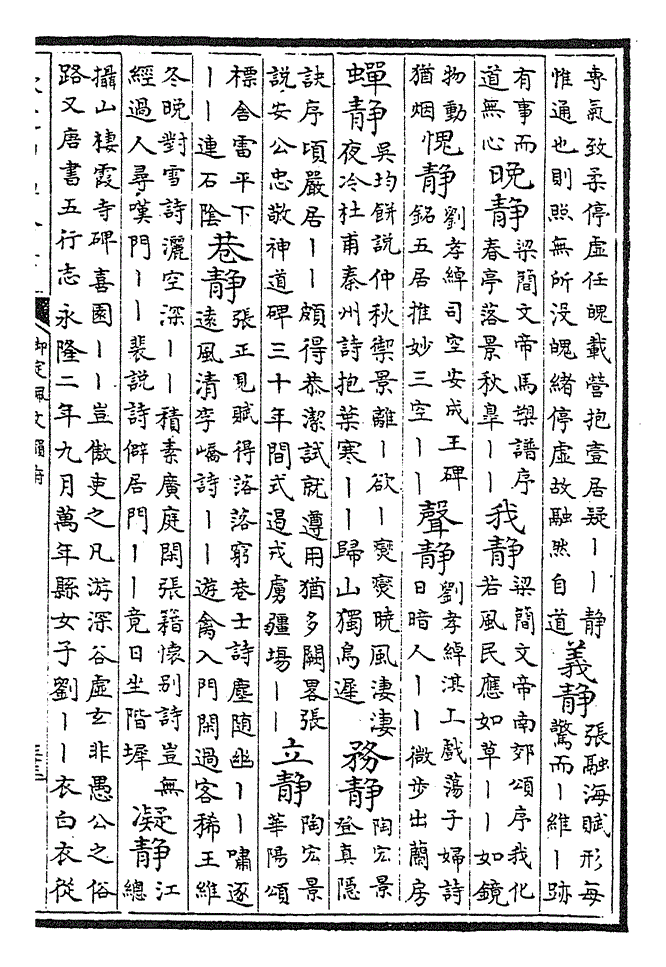 專氣致柔停虛任魄載營抱壹居疑丨丨靜
惟通也則照無所没魄緒停虛故融然自道
義靜
張融海賦形每
驚而丨維丨跡
有事而
道無心
晚靜
梁簡文帝馬槊譜序
春亭落景秋皐丨丨
我靜
梁簡文帝南郊頌序我化
若風民應如草丨丨如鏡
物動
猶烟
愧靜
劉孝綽司空安成王碑
銘五居推妙三空丨丨
聲靜
劉孝綽淇上戲蕩子婦詩
日暗人丨丨微步出蘭房
蟬靜
吳均餅說仲秋禦景離丨欲丨爕爕曉風淒淒
夜冷杜甫秦州詩抱葉寒丨丨歸山獨鳥遲
務靜
陶宏景
登真隱
訣序頃嚴居丨丨頗得恭潔試就遵用猶多闕畧張
說安公忠敬神道碑三十年間式遏戎虜疆埸丨丨
立靜
陶宏景
華陽頌
標舍雷平下
丨丨連石陰
巷靜
張正見賦得落落窮巷士詩塵随幽丨丨嘯逐
遠風清李嶠詩丨丨遊禽入門閑過客稀王維
冬晚對雪詩灑空深丨丨積素廣庭閑張籍懷别詩豈無
經過人尋嘆門丨丨裴說詩僻居門丨丨竟日坐階墀
凝靜
江
總
攝山棲霞寺碑喜園丨丨豈傲吏之凡游深谷虛玄非愚公之俗
路又唐書五行志永隆二年九月萬年縣女子劉丨丨衣白衣從
御定佩文韻府